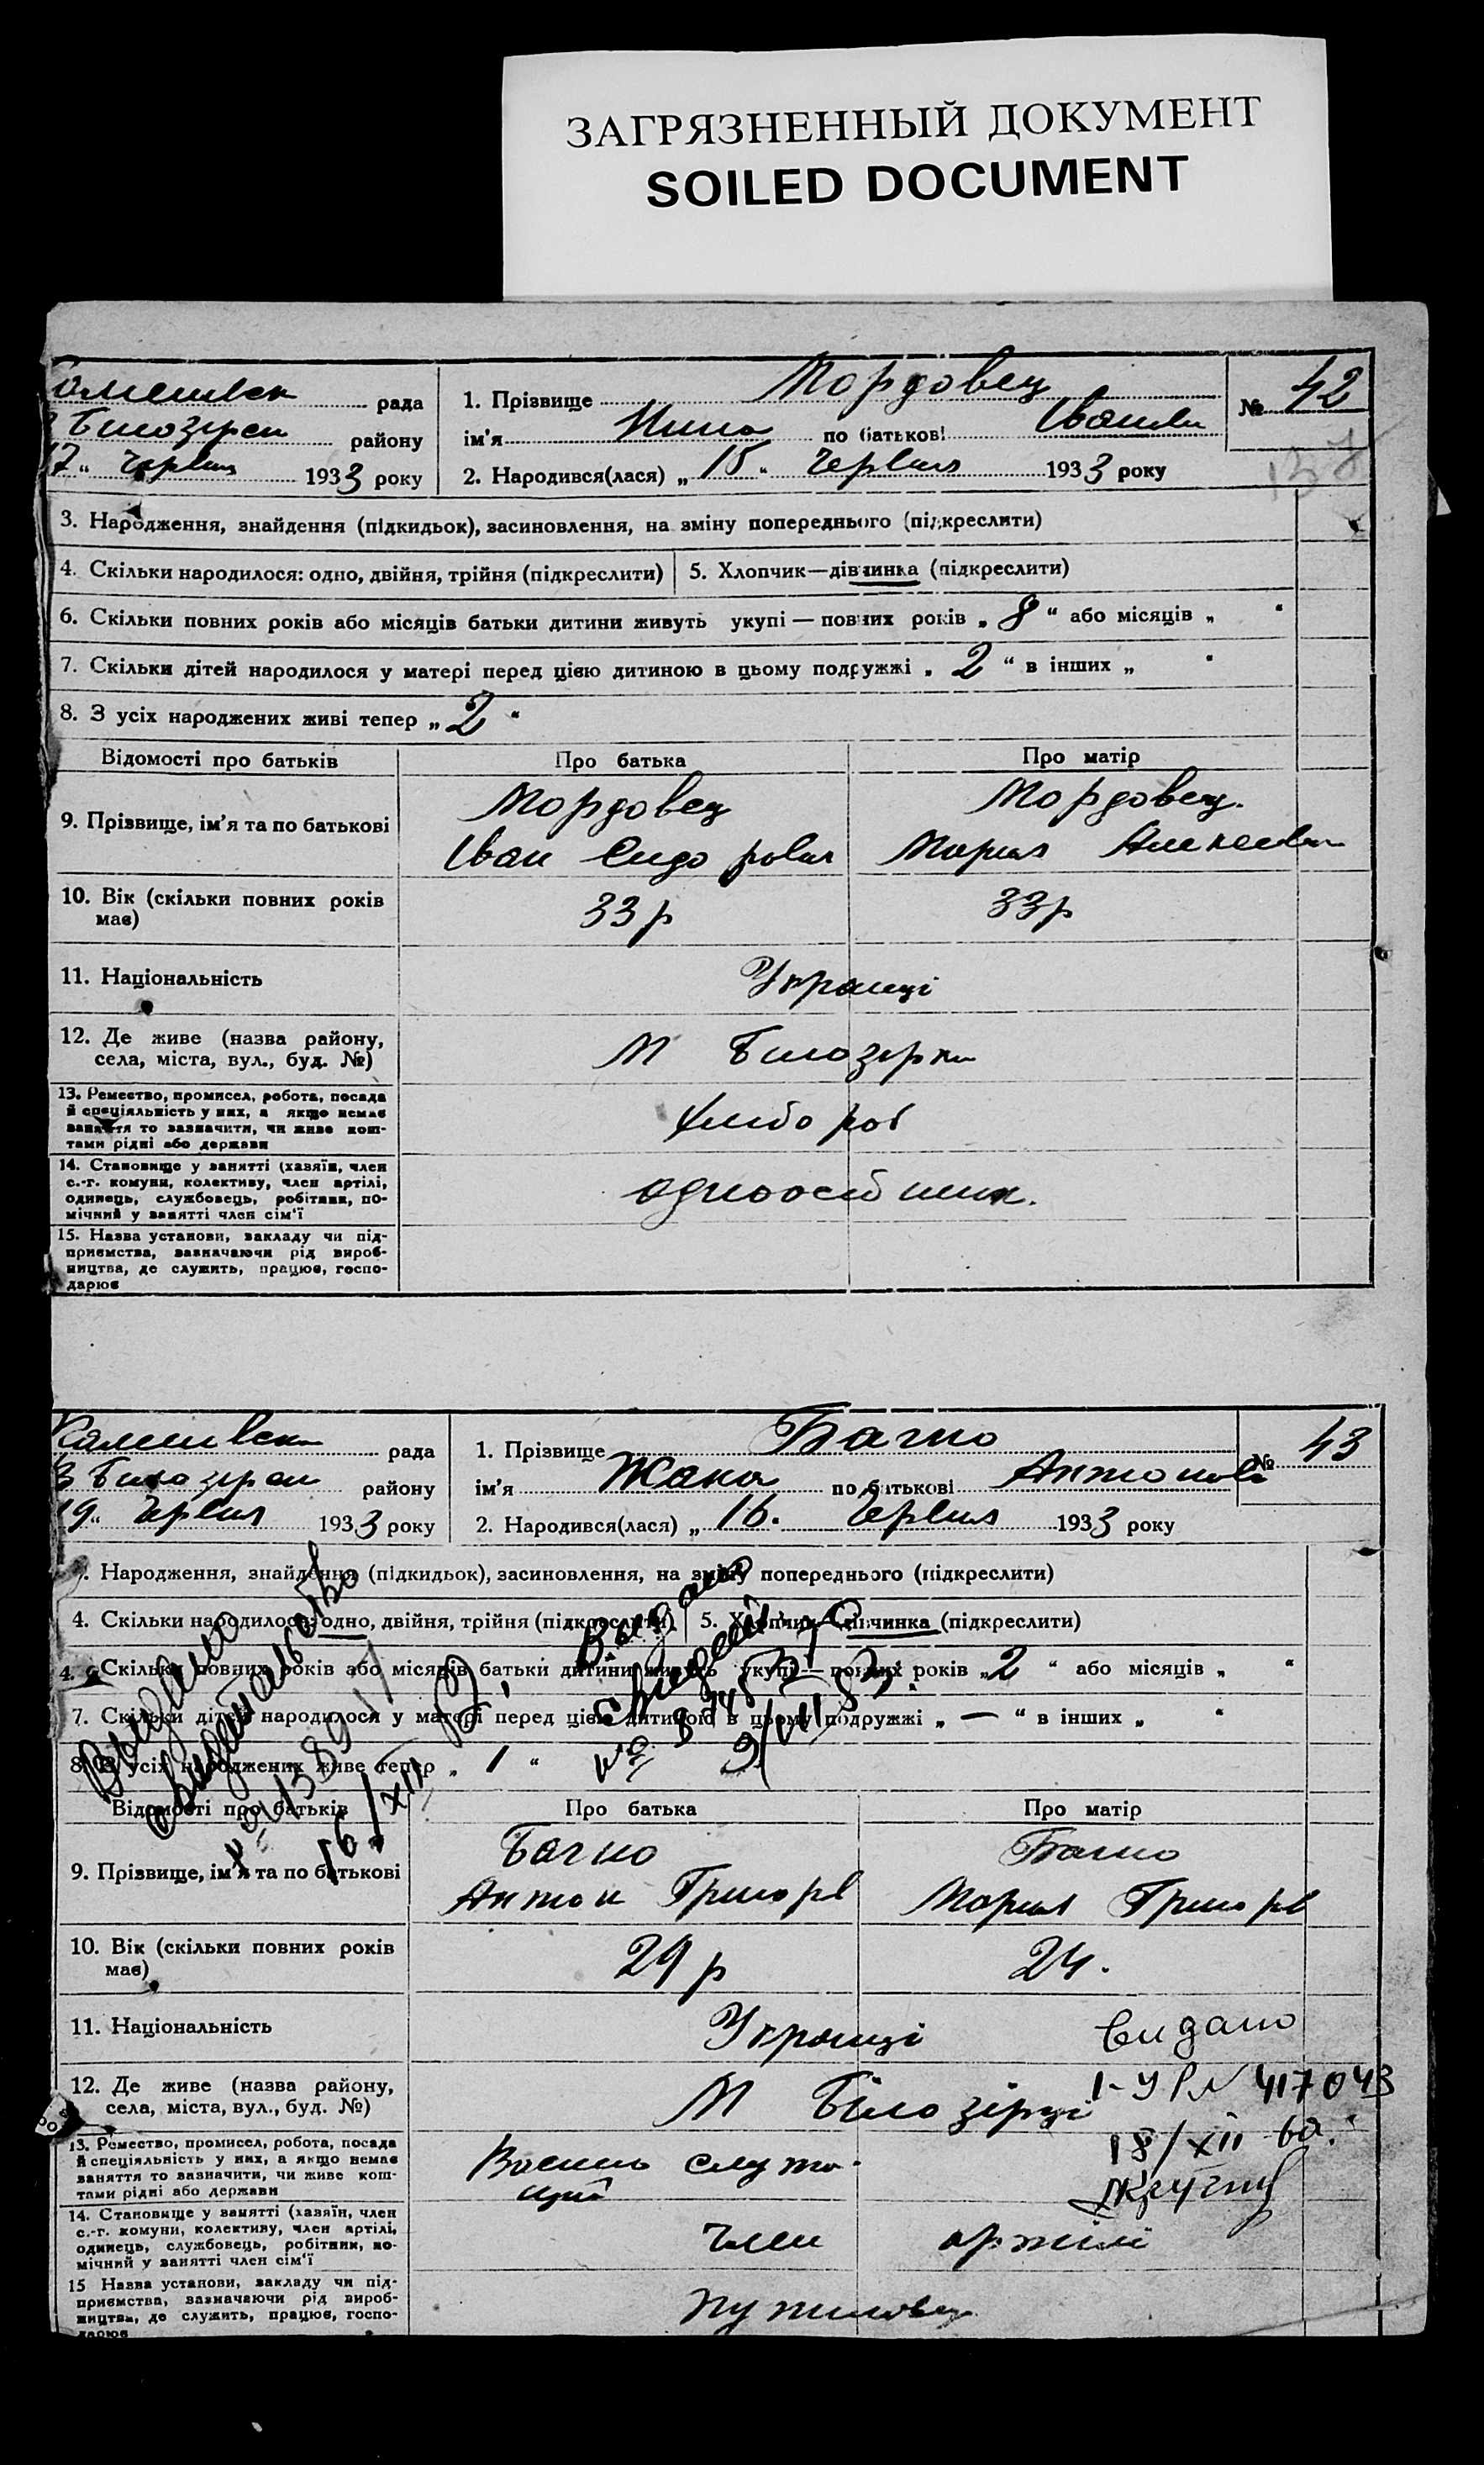 ЗАГРЯЗНЕННЫЙ ДОКУМЕНТ
SOILED DOCUMENT
рада
Білозерсь району
17 " червня 1933 року
1. Прізвище Мордовец
ім'я Нина по батькові Іванівн
2. Народився(лася) „ 15 " червня 1933 року
№ 42
137
3. Народження, знайдення (підкидьок), засиновлення, на зміну попереднього (підкреслити)
4. Скільки народилося: одно, двійня, трійня (підкреслити)
5. Хлопчик—дівчинка (підкреслити)
6. Скільки повних років або місяців батьки дитини живуть укупі — повних років „ 8 " або місяців „ "
7. Скільки дітей народилося у матері перед цією дитиною в цьому подружжі „ 2 " в інших „ "
8. З усіх народжених живі тепер „ 2 "
Відомості про батьків
Про батька
Про матір
9. Прізвище, ім'я та по батькові
Мордовец
Іван Сидорович
Мордовец.
Мария Алексеевн
10. Вік (скільки повних років має)
33 р
33р
11. Національність
Українці
12. Де живе (назва району,
села, міста, вул., буд. №)
М Білозірки
13. Ремество, промисел, робота, посада
й спеціяльність у них, а якщо немає
заняття то зазначити, чи живе кош-
тами рідні або держави
хлібороб
14. Становище у занятті (хазяїн, член
с.-г. комуни, колективу, член артілі,
одинець, службовець, робітник, по-
мічний у занятті член сім'ї
одноосібник.
15. Назва установи, закладу чи під-
приємства, зазначаючи рід вироб-
ництва, де служить, працює, госпо-
дарює
рада
Білозерсь району
19 " червня 1933 року
1. Прізвище Бачно
ім'я Жана по батькові Антонов
2. Народився(лася) „ 16. червня 1933 року
№ 43
Народження, знайдення (підкидьок), засиновлення, на зміну попереднього (підкреслити)
4. Скільки народилося: одно, двійня, трійня (підкреслити)
5. Хлопчик—дівчинка (підкреслити)
Скільки повних років або місяців батьки дитини живуть укупі — повних років „ 2 " або місяців „ "
7. Скільки дітей народилося у матері перед цією дитиною в цьому подружжі „ — " в інших „ "
8. З усіх народжених живе тепер „ 1 "
Выдано
16/XII
Выдано
Відомості про батьків
Про батька
Про матір
9. Прізвище, ім'я та по батькові
Бачно
Антон Григорв
Бачно
Мария Григорв
10. Вік (скільки повних років має)
29 р
24.
11. Національність
Українці
видано
І-УР N 417043
18/XII 60.
12. Де живе (назва району,
села, міста, вул., буд. №)
М Білозірці
13. Ремество, промисел, робота, посада
й спеціяльність у них, а якщо немає
заняття то зазначити, чи живе кош-
тами рідні або держави
14. Становище у занятті (хазяїн, член
с.-г. комуни, колективу, член артілі,
одинець, службовець, робітник, по-
мічний у занятті член сім'ї
член артілі
15 Назва установи, закладу чи під-
приємства, зазначаючи рід вироб-
ництва, де служить, працює, госпо-
дарює